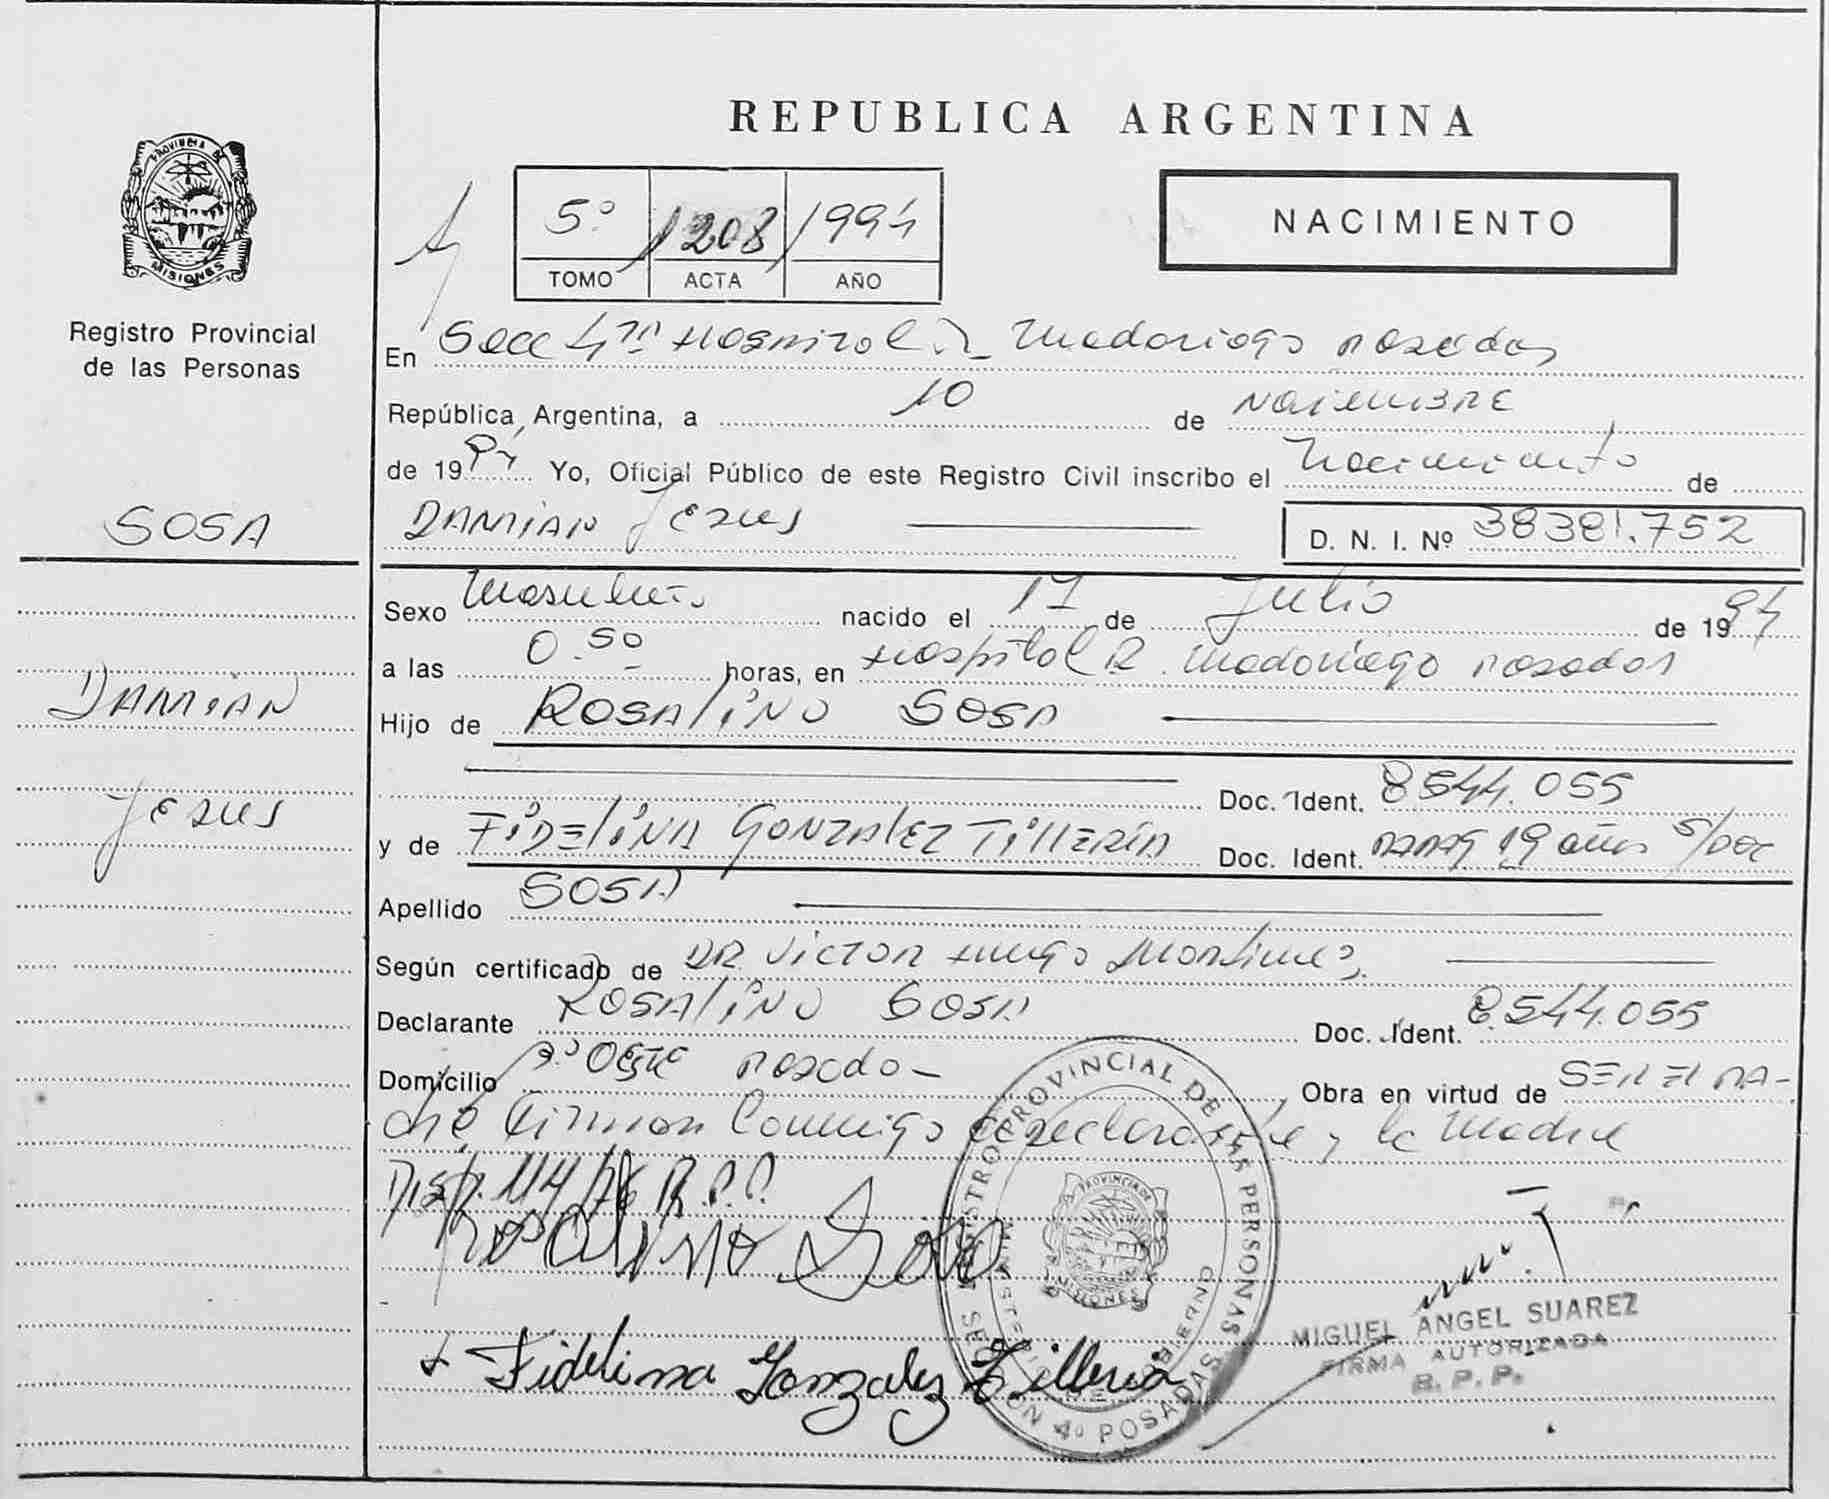 REPUBLICA ARGENTINA
PROVINCIA DE
MISIONES
Registro Provincial
de las Personas
5º 1208 1994
TOMO ACTA AÑO
NACIMIENTO
En Secc 4ta Hospital R. Madariaga Posadas
República Argentina, a 10 de Noviembre
de 1994 Yo, Oficial Público de este Registro Civil inscribo el Nacimiento de
SOSA
DAMIAN Jesus D. N. I. Nº 38381.752
Sexo Masculino nacido el 17 de Julio de 1994
a las 0.50 horas, en Hospital R. Madariaga Posadas
DAMIAN
Hijo de ROSALINO SOSA
Jesus
Doc. Ident. 8544.055
y de FIDELINA GONZALEZ TILLERIA Doc. Ident. 19 años s/doc
Apellido SOSA
Según certificado de DR Victor Hugo Martinez
Declarante ROSALINO SOSA Doc. Ident. 8.544.055
Domicilio Oeste Posadas Obra en virtud de SER EL PA-
dre Firman Conmigo el declarante y la Madre
Disp. 114/76 R.P.P.
Rosalino Sosa
Fidelina Gonzalez Tilleria
REGISTRO PROVINCIAL DE LAS PERSONAS
MINISTERIO DE GOBIERNO
PROVINCIA DE
MISIONES
SECCION 4º POSADAS
MIGUEL ANGEL SUAREZ
FIRMA AUTORIZADA
R. P. P.